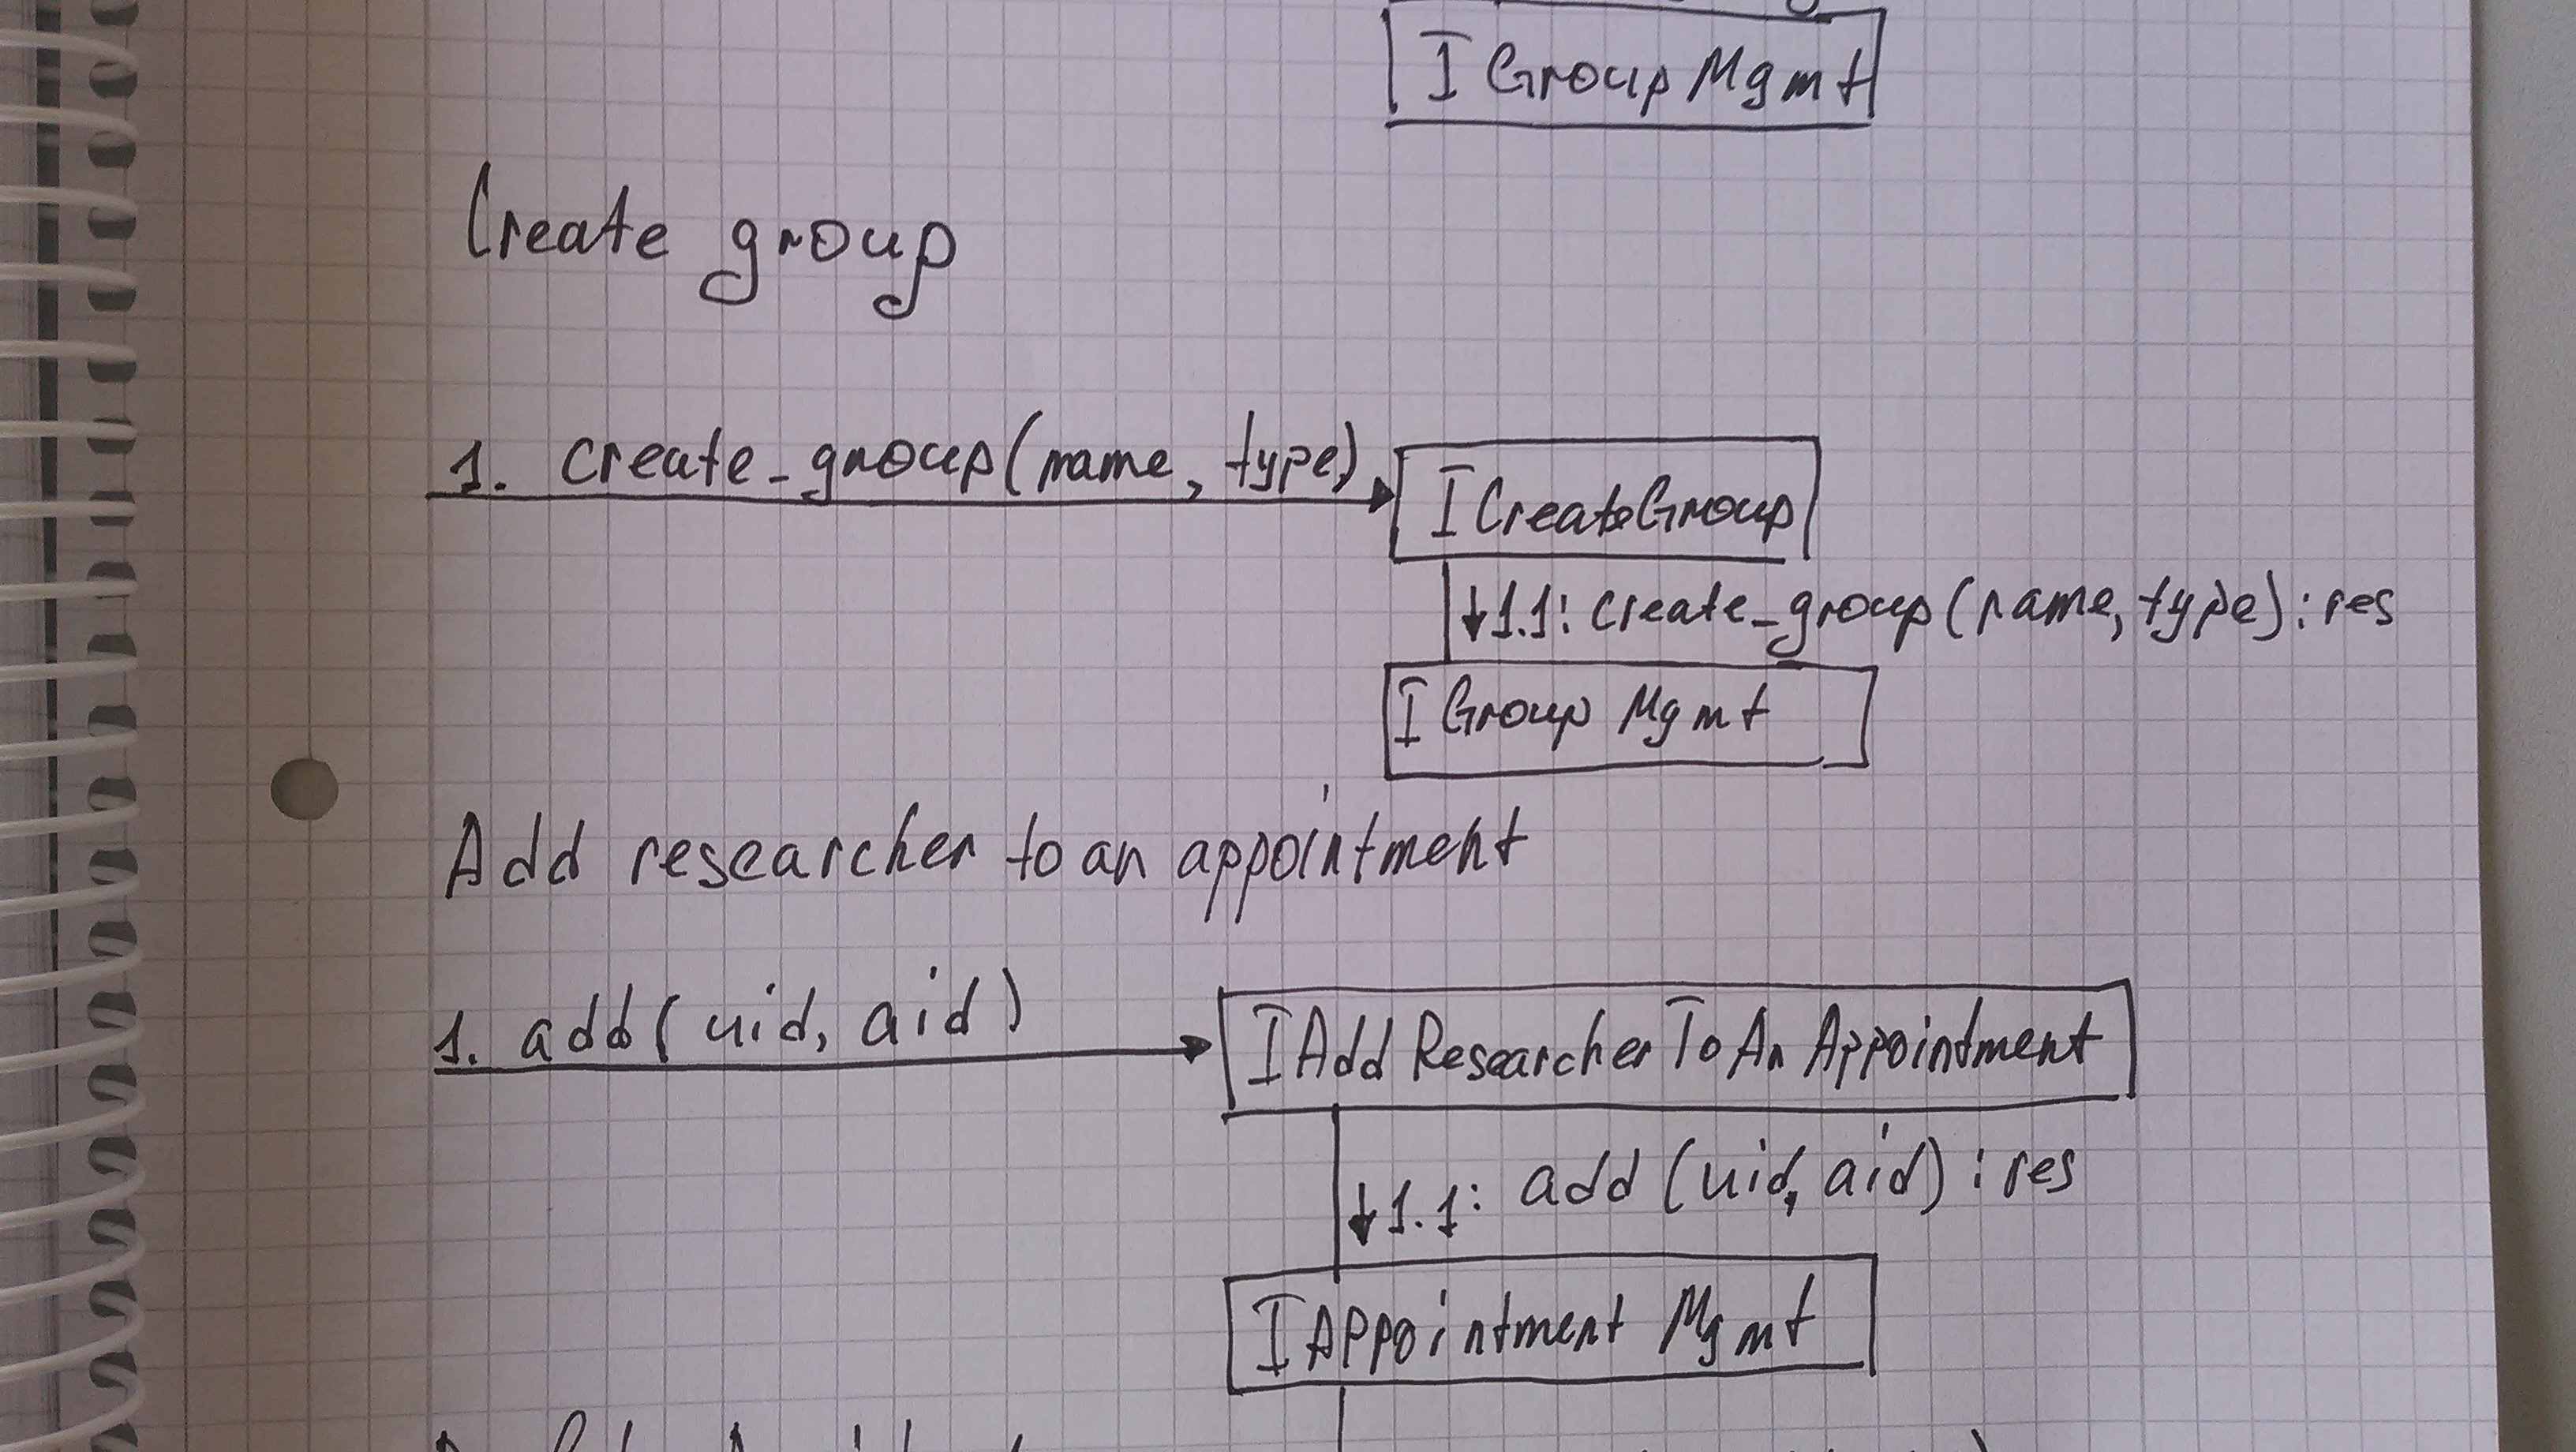 IGroupMgmt
Create group
1. create_group(name, type)
ICreateGroup
1.1: create_group(name, type): res
IGroup Mgmt
Add researcher to an appointment
1. add(uid, aid)
IAddResearcherToAnAppointment
1.1: add(uid, aid): res
IAppointment Mgmt